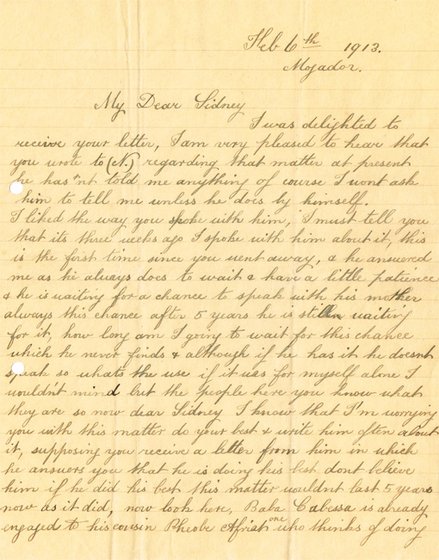 Feb 6th 1913.
Mogador.
My Dear Sidney
I was delighted to
receive your letter, I am very pleased to hear that
you wrote to (N.) regarding that matter at present
he has'nt told me anything of course I wont ask
him to tell me unless he does by himself.
I liked the way you spoke with him, I must tell you
that its three weeks ago I spoke with him about it, this
is the first time since you went away, & he answered
me as he always does to wait & have a little patience
& he is waiting for a chance to speak with his mother
always this chance after 5 years he is still waiting
for it, how long am I going to wait for this chance
which he never finds & although if he has it he doesnt
speak so whats the use if it was for myself alone I
wouldn't mind but the people here you know what
they are so now dear Sidney I know that I'm worrying
you with this matter do your best & write him often about
it, supposing you receive a letter from him in which
he answers you that he is doing his best dont believe
him if he did his best this matter wouldnt last 5 years
now as it did, now look here, Baba Cabessa is already
engaged to his cousin Pheobe Afriat one who thinks of doing